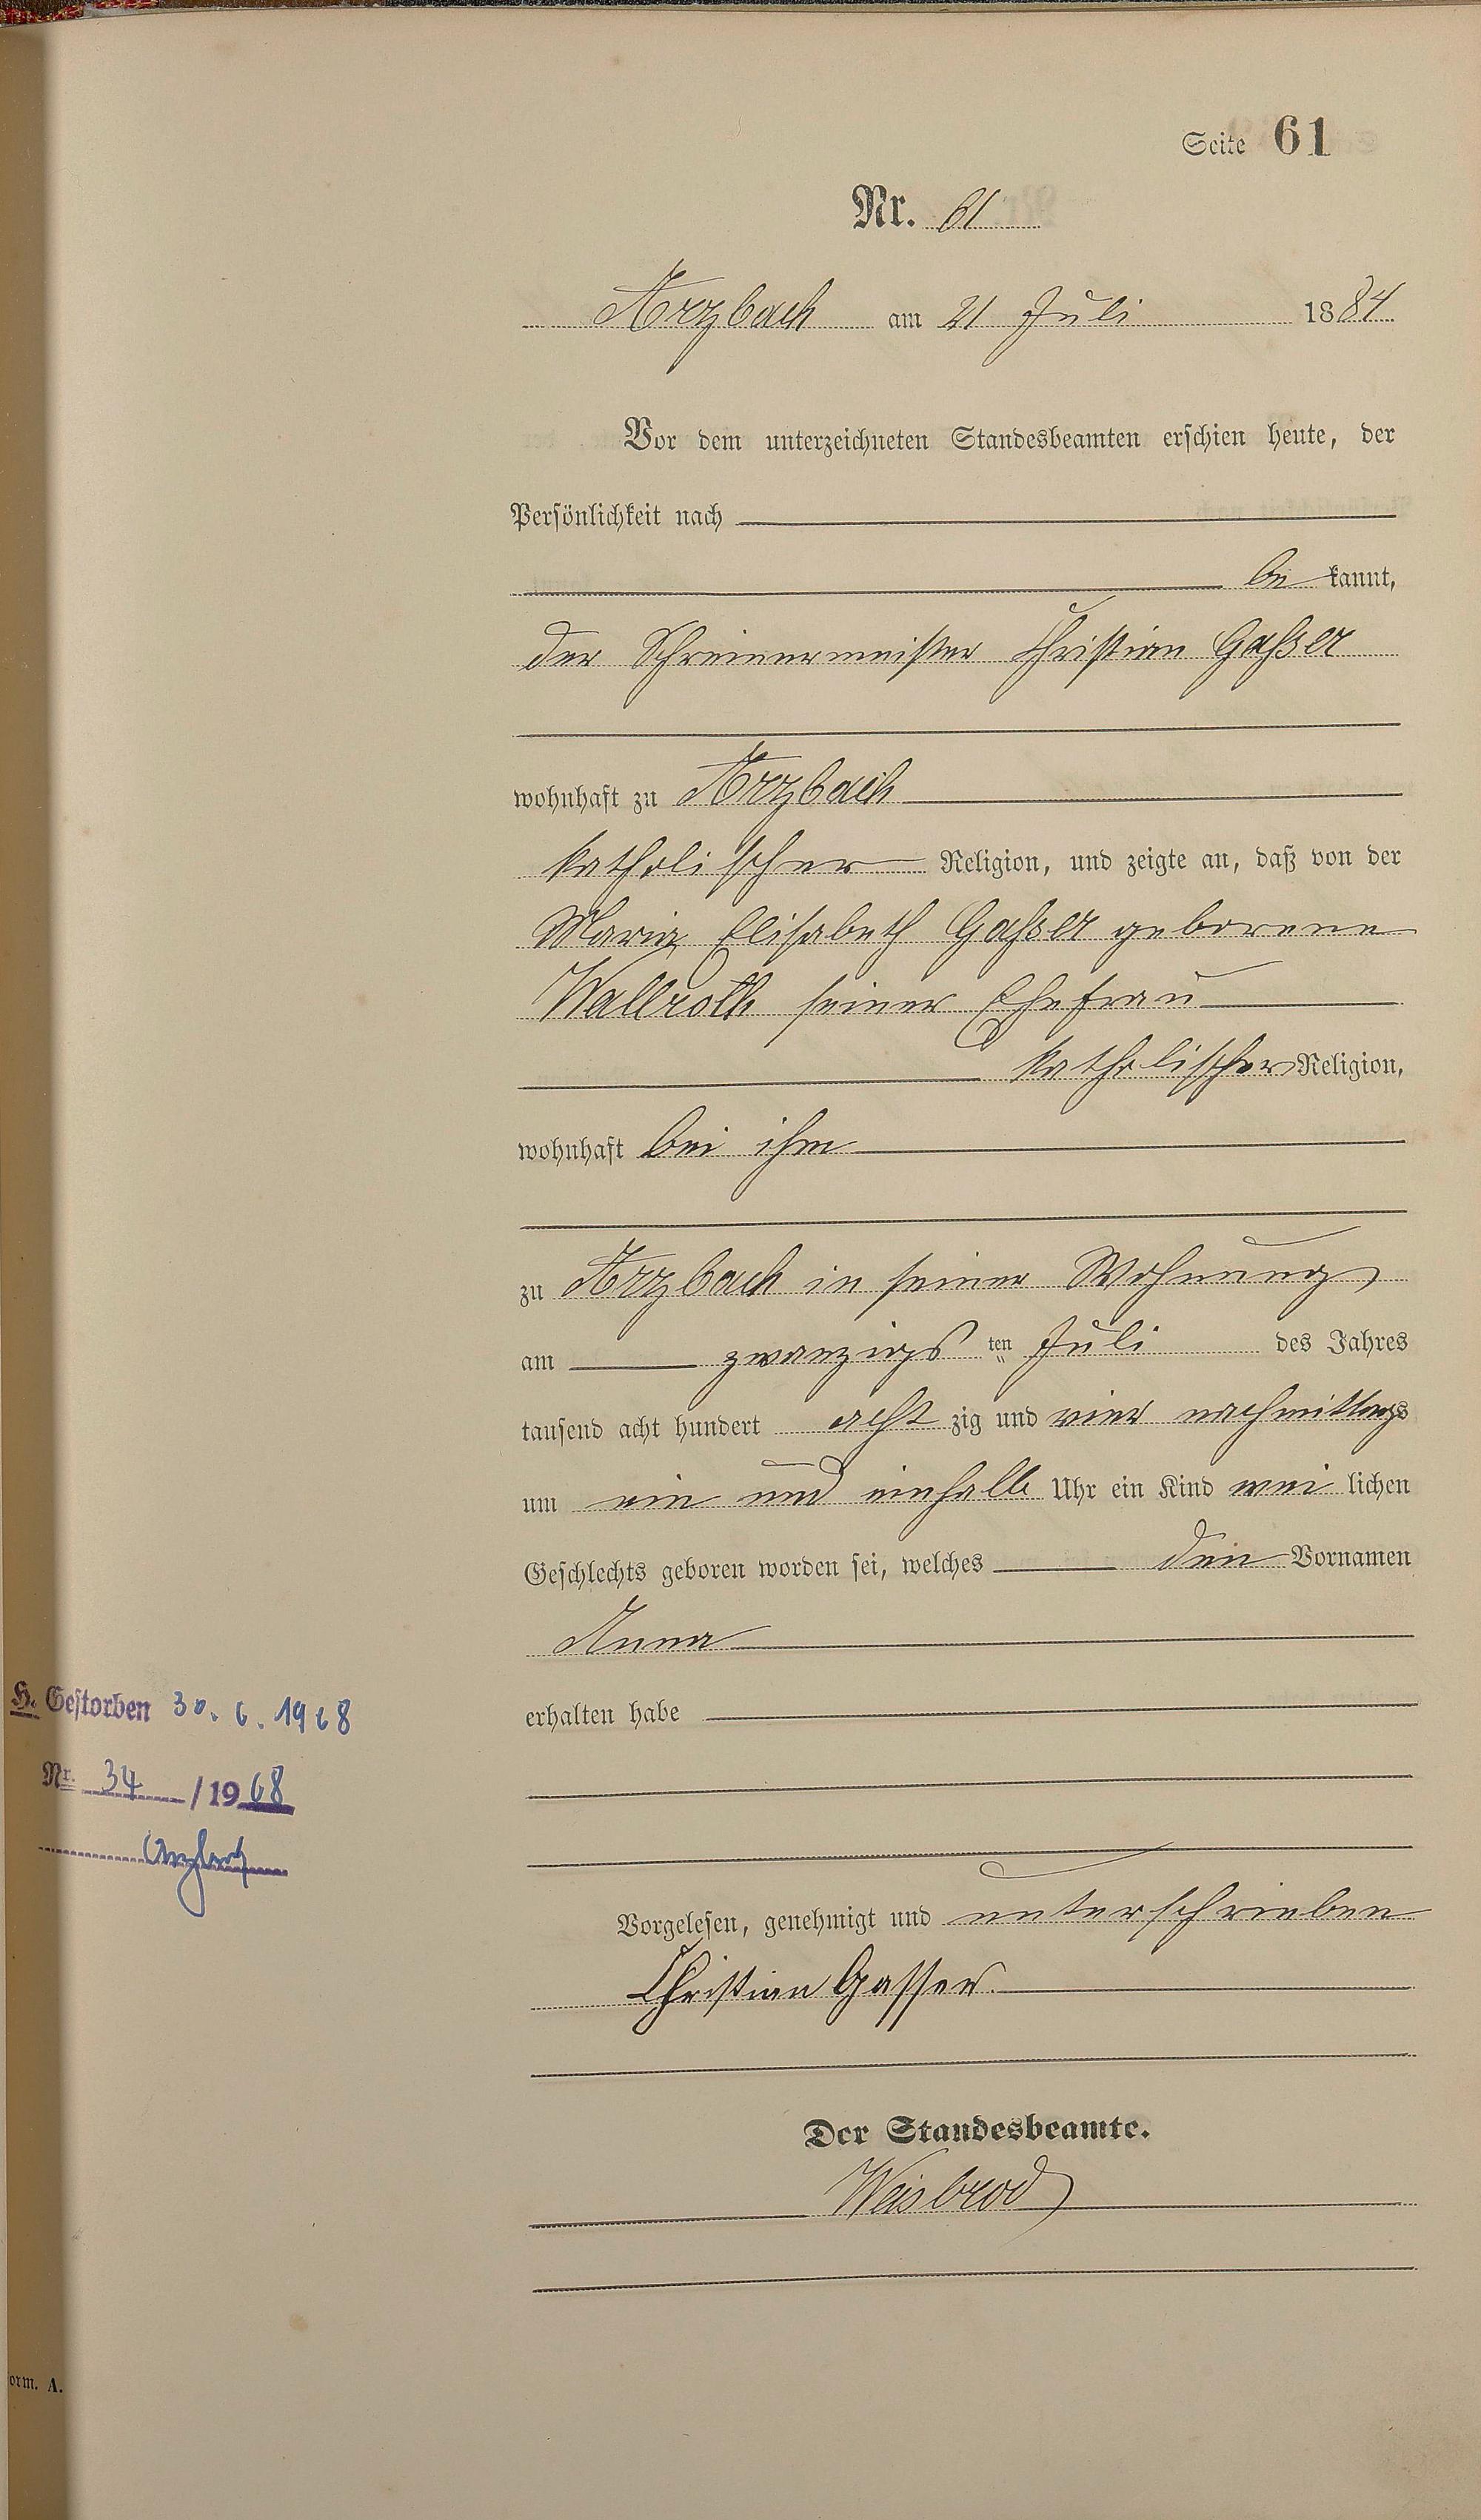 Seite 61
Nr. 61
Arzbach am 21 Juli 1884
Vor dem unterzeichneten Standesbeamten erschien heute, der
Persönlichkeit nach
be kannt,
der Schreinermeister Christian Gaßer
wohnhaft zu Arzbach
katholischer Religion, und zeigte an, daß von der
Maria Elisabeth Gaßer geborene
Wallroth seiner Ehefrau
katholischer Religion,
wohnhaft bei ihm
zu Arzbach in seiner Wohnung
am zwanzigs ten Juli des Jahres
tausend acht hundert acht zig und vier nachmittags
um ein und einhalb Uhr ein Kind wei lichen
Geschlechts geboren worden sei, welches den Vornamen
Anna
erhalten habe
H. Gestorben 30. 6. 1968
Nr. 34 / 19 68
Arzbach
Vorgelesen, genehmigt und unterschrieben
Christian Gasser.
Der Standesbeamte.
Weisbrod
orm. A.